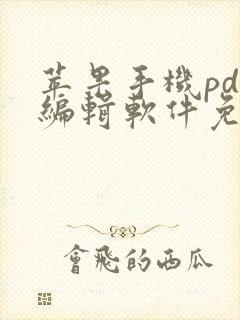 苹果手機pd
編輯軟件免
會飛的西瓜